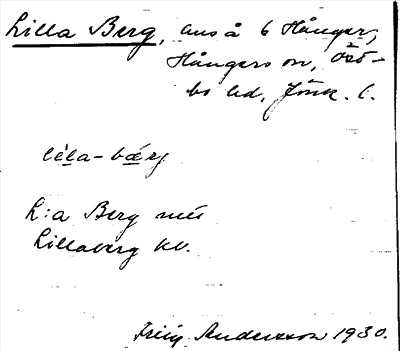 Lilla Berg, aus å 6 Hånger,
Hångers sn, Östbo hd, Jönk. l.
lìla-bærj
L:a Berg
Lillaberg kv.
Andersson 1930.